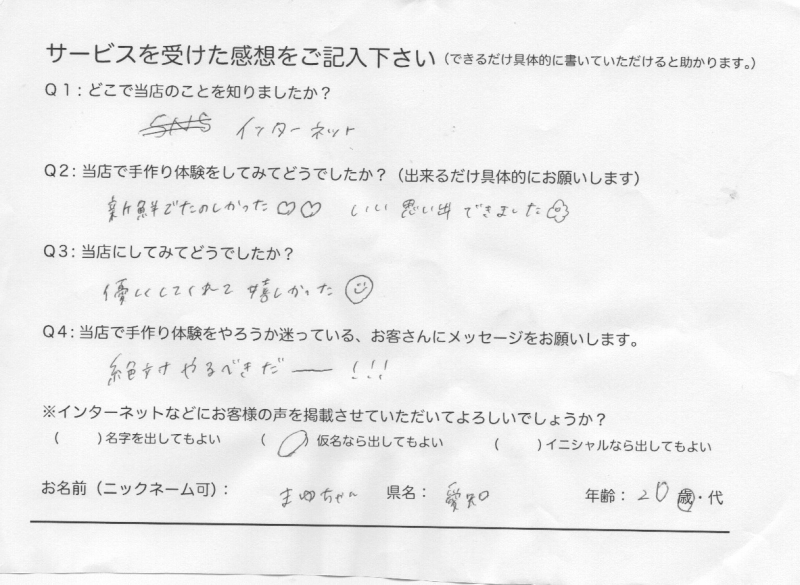 サービスを受けた感想をご記入下さい（できるだけ具体的に書いていただけると助かります。）
Ｑ１：どこで当店のことを知りましたか？
SNS インターネット
Ｑ２：当店で手作り体験をしてみてどうでしたか？（出来るだけ具体的にお願いします）
新鮮でたのしかった♡♡ いい思い出できました
Ｑ３：当店にしてみてどうでしたか？
優しくしてくれて嬉しかった
Ｑ４：当店で手作り体験をやろうか迷っている、お客さんにメッセージをお願いします。
絶対やるべきだー！！！
※インターネットなどにお客様の声を掲載させていただいてよろしいでしょうか？
（　）名字を出してもよい （○）仮名なら出してもよい （　）イニシャルなら出してもよい
お名前（ニックネーム可）： まゆちゃん 県名： 愛知 年齢： 20 歳・代